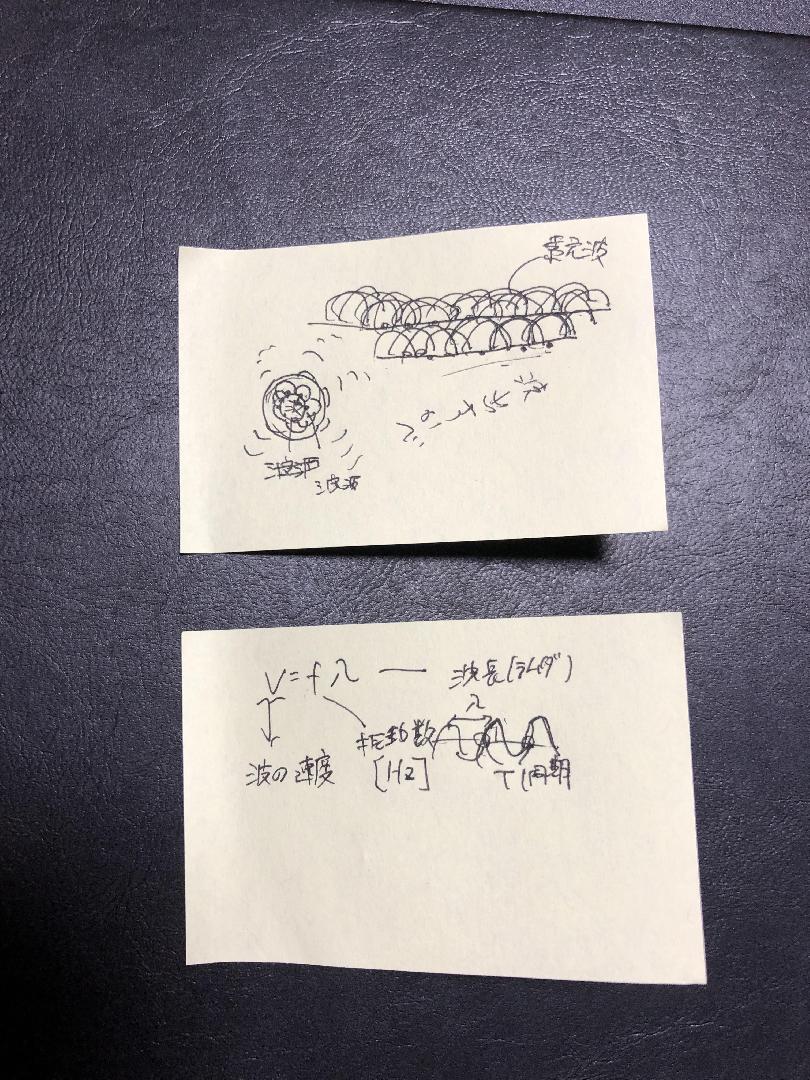 素元波
波源
波源
V=fλ — 波長(ラムダ)
λ
振動数
[Hz]
波の速度
T(周期